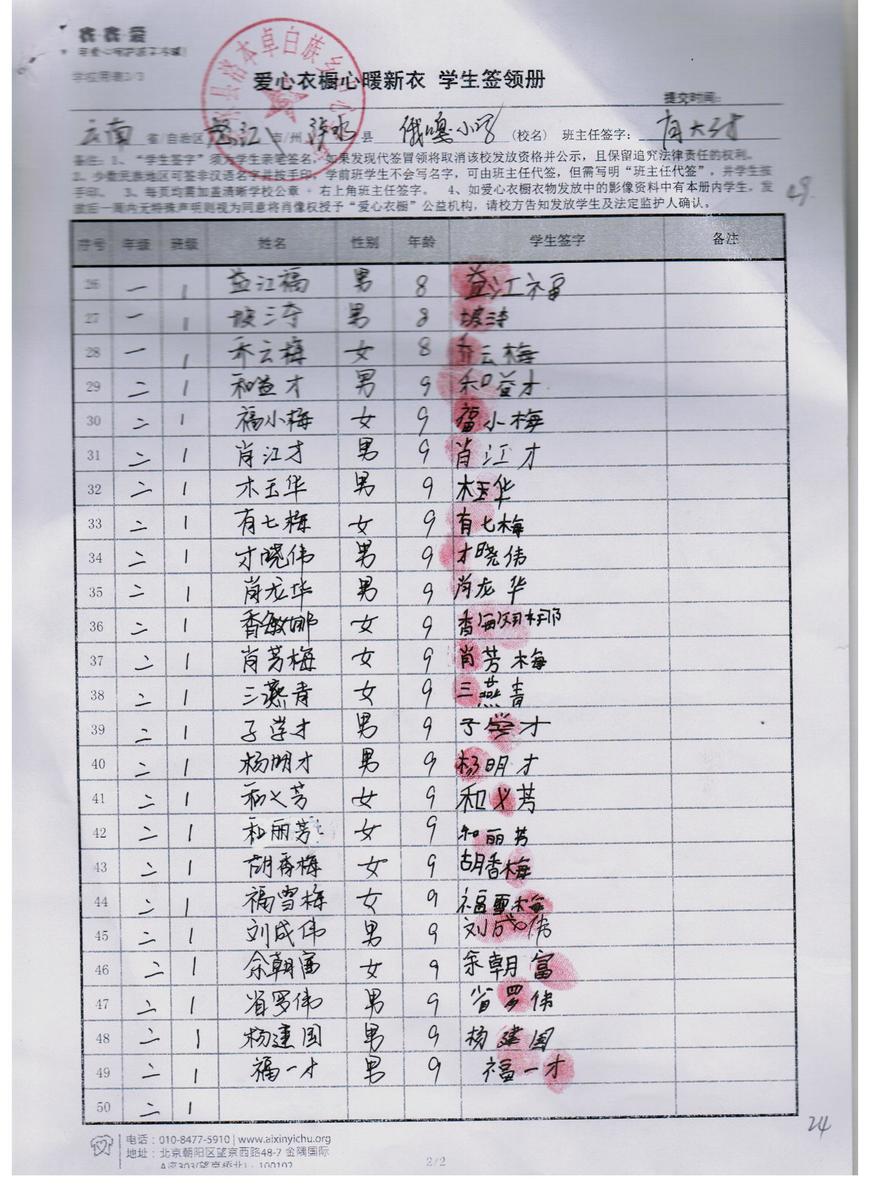 爱心衣橱心暖新衣 学生签领册
提交时间：
云南 省/自治区 怒江 市/州 泸水 县 俄嘎小学 (校名) 班主任签字：
备注：1、“学生签字”须为学生亲笔签名，如果发现代签冒领将取消该校发放资格并公示，且保留追究法律责任的权利。
2、少数民族地区可签非汉语名字并按手印，学前班学生不会写名字，可由班主任代签，但需写明“班主任代签”，并学生按
手印。 3、每页均需加盖清晰学校公章 + 右上角班主任签字。 4、如爱心衣橱衣物发放中的影像资料中有本册内学生，发
放后一周内无特殊声明则视为同意将肖像权授予“爱心衣橱”公益机构，请校方告知发放学生及法定监护人确认。
序号 年级 班级 姓名 性别 年龄 学生签字 备注
26 一 1 益江福 男 8 益江福
27 一 1 坡三夺 男 8
28 一 1 乔云梅 女 8 乔云梅
29 二 1 和益才 男 9 和益才
30 二 1 福小梅 女 9 福小梅
31 二 1 肖江才 男 9 肖江才
32 二 1 木玉华 男 9 木玉华
33 二 1 有七梅 女 9 有七梅
34 二 1 才晓伟 男 9 才晓伟
35 二 1 肖龙华 男 9 肖龙华
36 二 1 香敏娜 女 9
37 二 1 肖芳梅 女 9 肖芳梅
38 二 1 三燕青 女 9 三燕青
39 二 1 子学才 男 9 子学才
40 二 1 杨明才 男 9 杨明才
41 二 1 和义芳 女 9 和义芳
42 二 1 和丽芳 女 9 和丽芳
43 二 1 胡香梅 女 9 胡香梅
44 二 1 福雪梅 女 9 福雪梅
45 二 1 刘成伟 男 9 刘成伟
46 二 1 余朝富 女 9 余朝富
47 二 1 省罗伟 男 9 省罗伟
48 二 1 杨建国 男 9 杨建国
49 二 1 福一才 男 9 福一才
50 二 1
24
电话：010-8477-5910 | www.aixinyichu.org
地址：北京朝阳区望京西路48-7 金隅国际
2/2